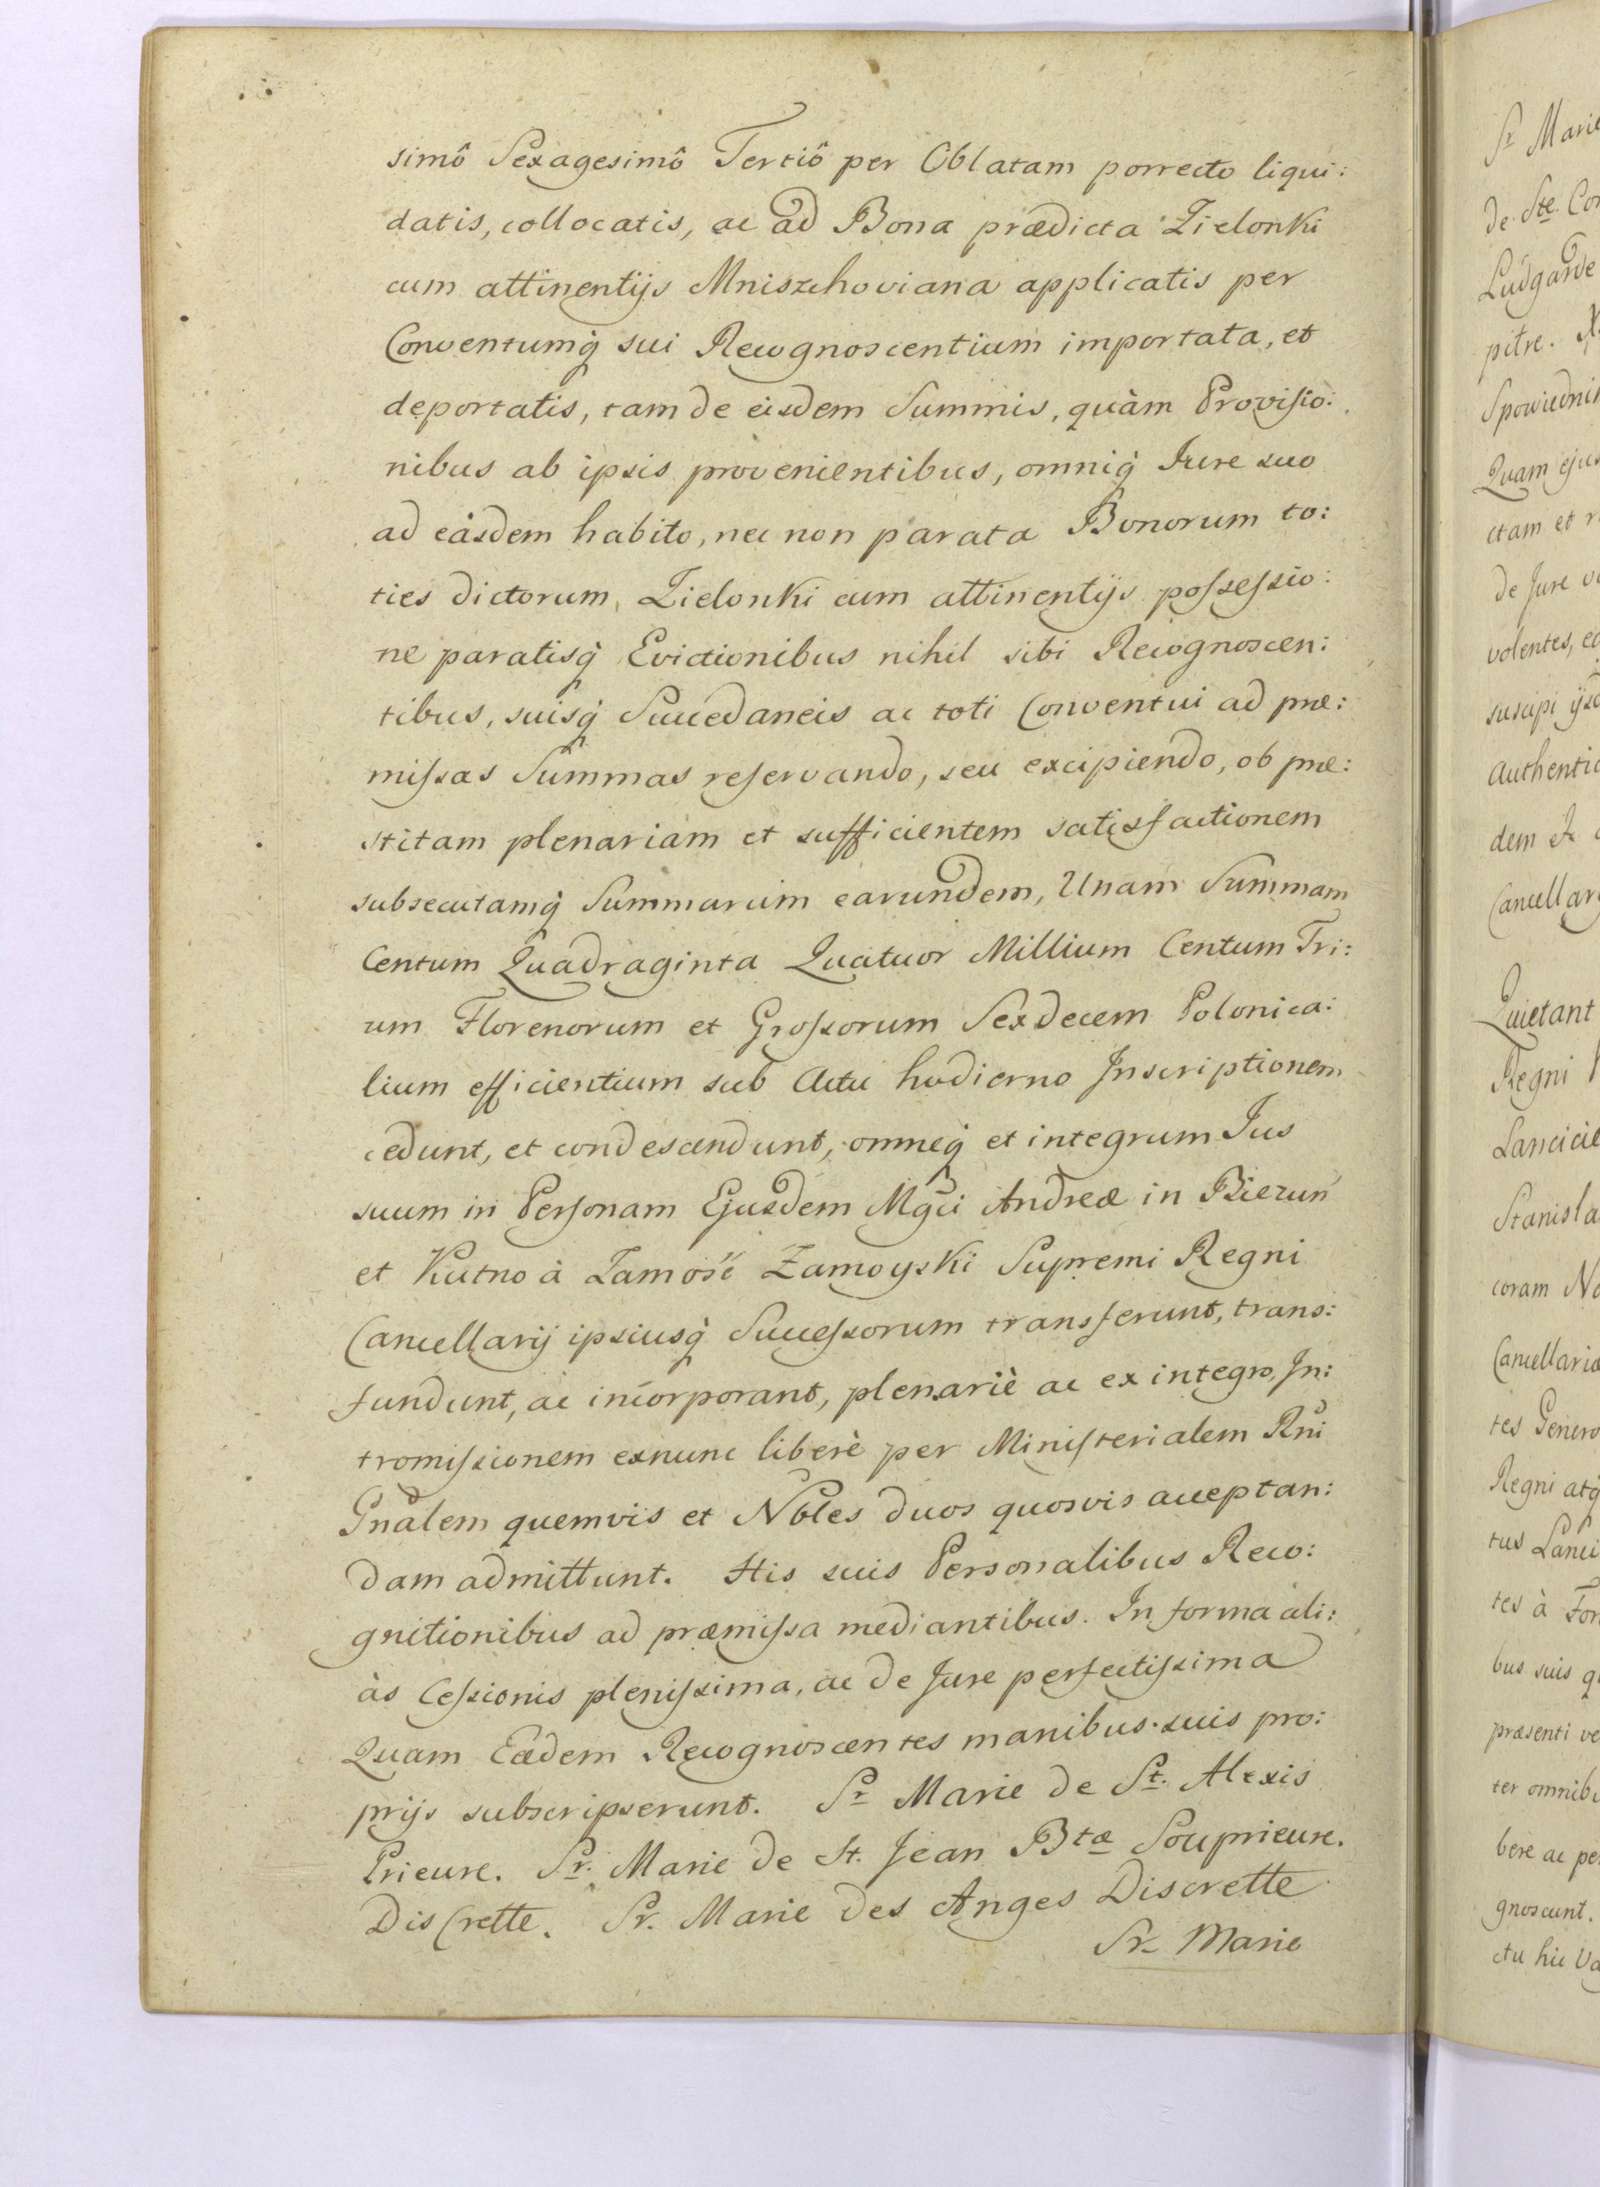 simô Sexagesimô Tertiô per Oblatam porrecto liqui:
datis, collocatis, ac ad Bona prædicta Zielonki
cum attinentijs Mniszchoviana applicatis per
Conventumq̃ sui Recognoscentium importata, et
deportatis, tam de eisdem Summis, quàm Provisio:
nibus ab ipsis provenientibus, omniq̃ Jure suo
ad eàsdem habito, nec non parata Bonorum to:
ties dictorum, Zielonki cum attinentijs possessio:
ne paratisq̃ Evictionibus nihil sibi Recognoscen:
tibus, suisq̃ Succedaneis ac toti Conventui ad præ:
missas Summas reservando, seu excipiendo, ob præ:
stitam plenariam et sufficientem satisfactionem
subsecutamq̃ Summarum earundem, Unam Summam
Centum Quadraginta Quatuor Millium Centum Tri:
um Florenorum et Grossorum Sexdecem Polonica:
lium efficientium sub Actu hodierno Inscriptionem
cedunt, et condescendunt, omneq̃ et integrum Jus
suum in Personam Ejusdem Mgci Andreæ in Biezuń
et Kutno à Zamość Zamoyski Supremi Regni
Cancellarij ipsiusq̃ Successorum transferunt, trans:
fundunt, ac incorporant, plenariè ac ex integro, In:
tromissionem exnunc liberè per Ministerialem Rni
Gnãlem quemvis et Nbles duos quosvis acceptan:
dam admittunt. His suis Personalibus Reco:
gnitionibus ad præmissa mediantibus. In forma ali:
às Cessionis plenissima, ac de Jure perfectissima
Quam Eædem Recognoscentes manibus suis pro:
prijs subscripserunt. Sr Marie de St. Alexis
Prieure. Sr. Marie de St. Jean Btæ Souprieure.
Discrette. Sr. Marie des Anges Discrette
Sr. Marie
Sr Marie
de Ste. Con
Ludgarde
pitre.
Spowiednik
Quam ejus
ctam et
de Jure
volentes,
suscipi
Authentic
dem
Cancellary
Quietant
Regni
Lancicie
Stanisla
coram
Cancellariæ
tes Genero
Regni atq̃
tus Lanci
tes à
bus suis
præsenti
ter omnib
bere ac
gnoscunt.
ctu hic